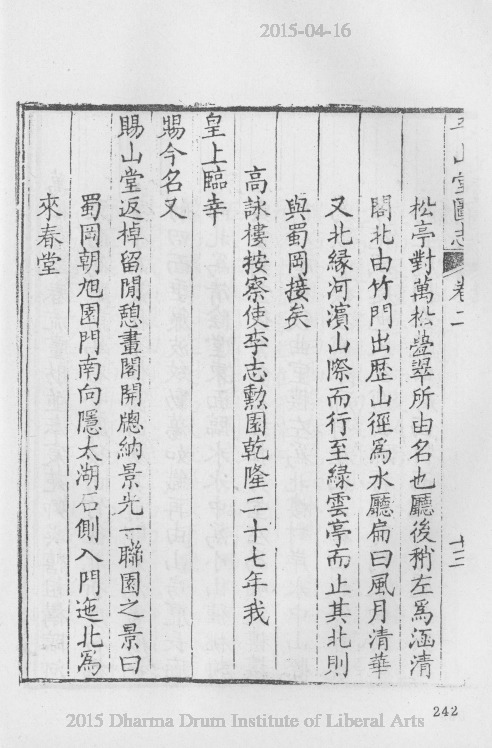 2015-04-16
平山堂圖志 卷二 十三
松亭對萬松疊翠所由名也廳後稍左爲涵清
閣北由竹門出歷山徑爲水廳扁曰風月清華
又北緣河濱山際而行至緑雲亭而止其北則
與蜀岡接矣
高詠樓按察使李志勲園乾隆二十七年我
皇上臨幸
賜今名又
賜山堂返棹留閒憩畫閣開牕納景光一聯園之景曰
蜀岡朝旭園門南向隱太湖石側入門迤北爲
來春堂
242
2015 Dharma Drum Institute of Liberal Arts